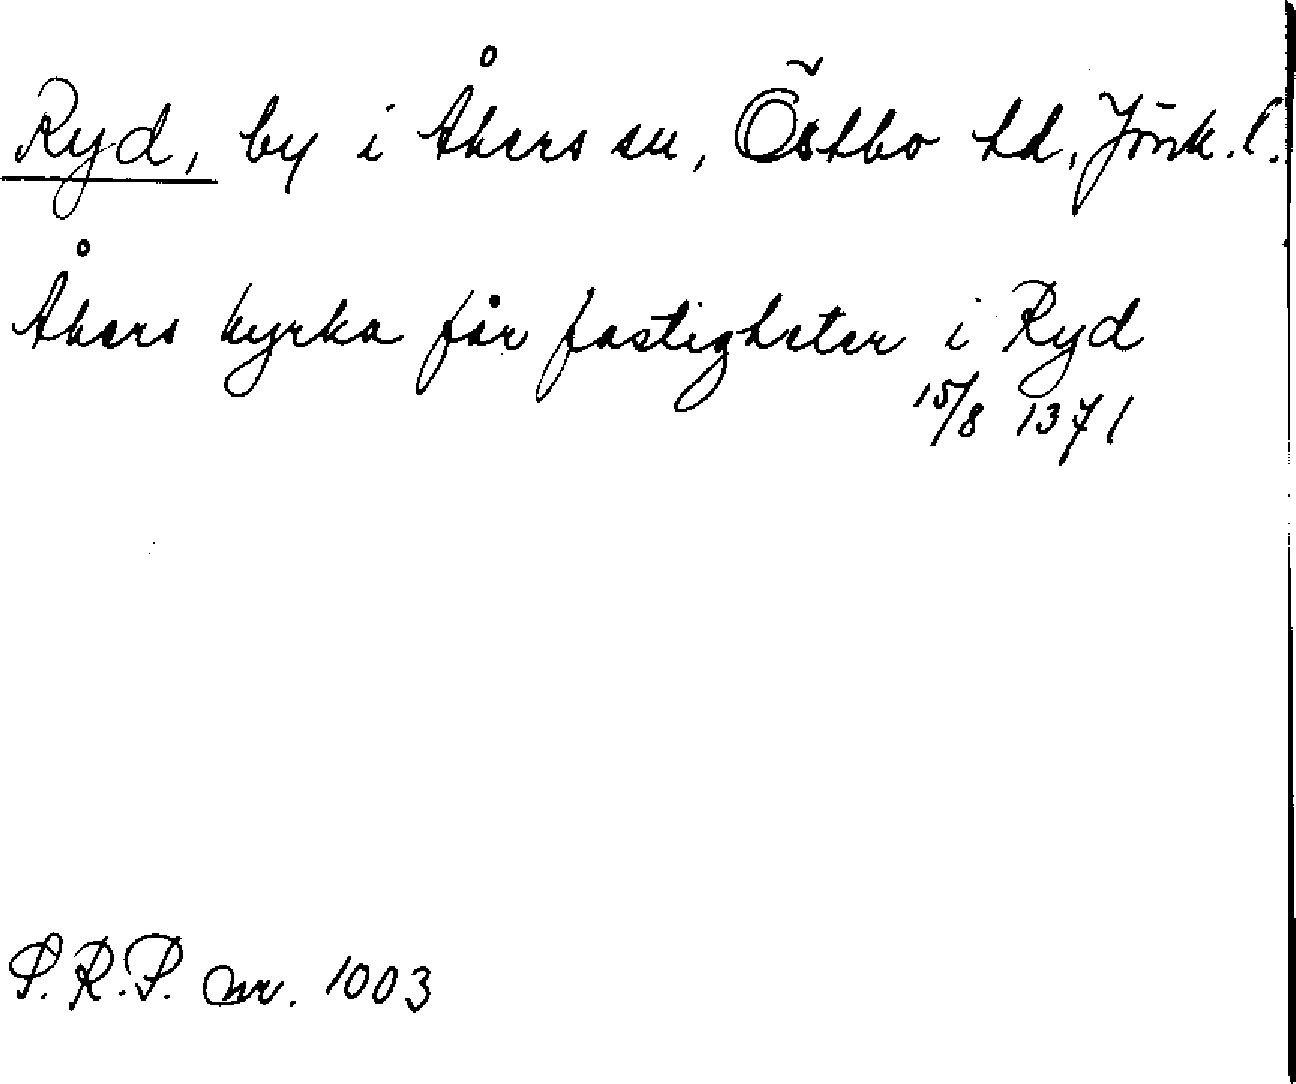 Ryd, by i Åkers sn, Östbo hd, Jönk. l.
Åkers kyrka får fastigheter i Ryd
15/8 1371
S.R.P. nr. 1003